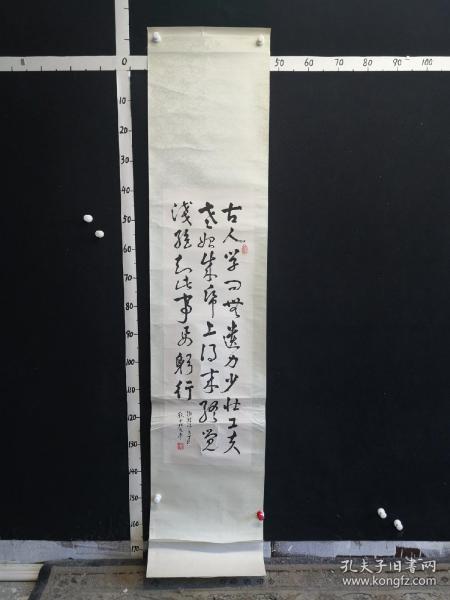 0 50 60 70 80 90 100
10
20
30
40
50
60
70
80
90
100
110
120
130
140
150
160
170
古人学问無遺力少壮工夫
老始成帋上得来終觉
淺絕知此事要躬行
孔夫子旧书网
www.kongfz.com